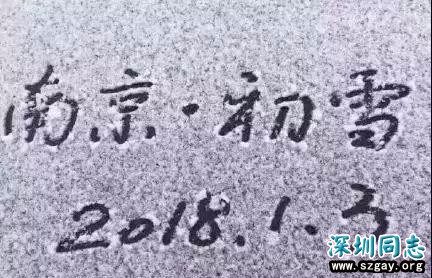 南京·初雪
2018.1.3
深圳同志
www.szgay.org